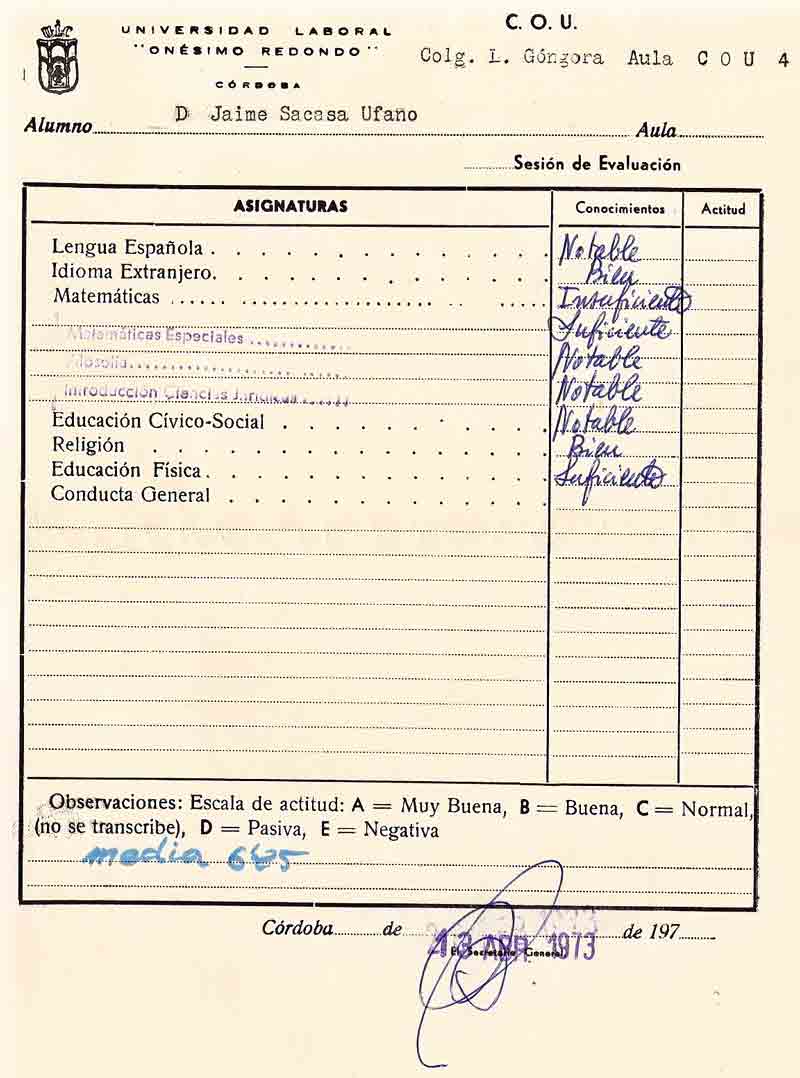 UNIVERSIDAD LABORAL
"ONÉSIMO REDONDO"
CÓRDOBA
C. O. U.
Colg. L. Góngora Aula C O U 4
Alumno D Jaime Sacasa Ufano Aula
Sesión de Evaluación
ASIGNATURAS Conocimientos Actitud
Lengua Española Notable
Idioma Extranjero. Bien
Matemáticas Insuficiente
Matemáticas Especiales Suficiente
Filosofía Notable
Introducción Ciencias Jurídicas Notable
Educación Cívico-Social Notable
Religión Bien
Educación Física. Suficiente
Conducta General
Observaciones: Escala de actitud: A = Muy Buena, B = Buena, C = Normal,
(no se transcribe), D = Pasiva, E = Negativa
media
Córdoba de de 197
13 ABR. 1973
El Secretario General